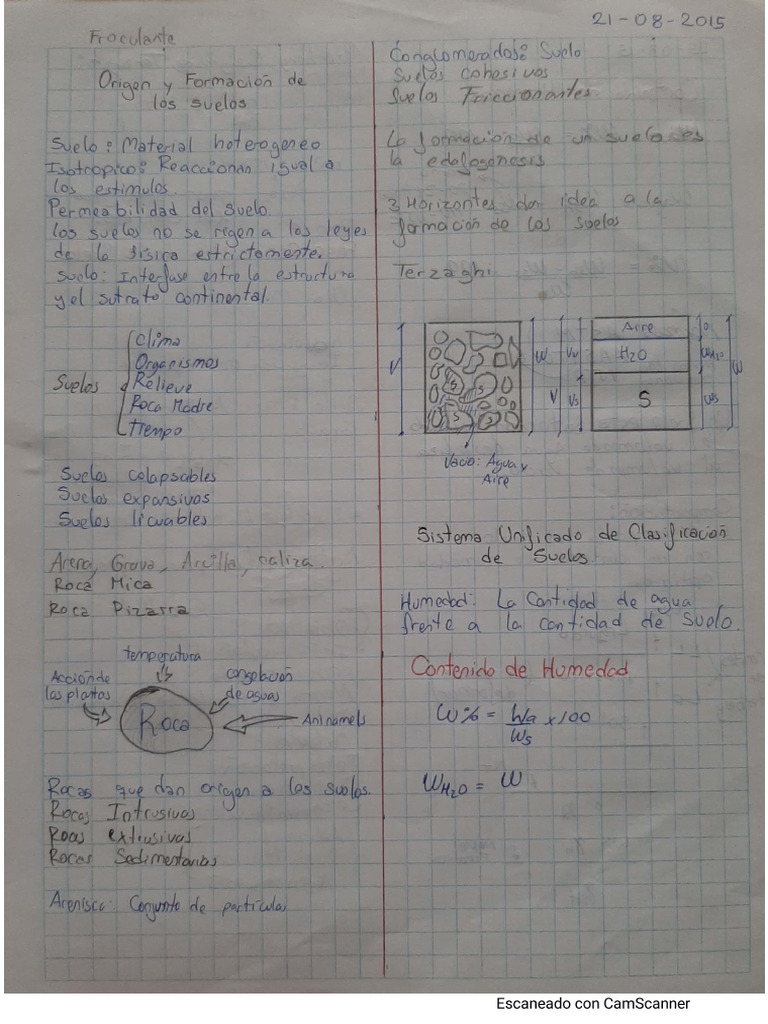 21-08-2015
Frocculante
Origen y Formación de
los suelos
Suelo: Material heterogeneo
Isotropico: Reaccionan igual a
los estimulos.
Permeabilidad del Suelo.
Los suelos no se rigen a las leyes
de la fisica estrictamente.
Suelo: Interfase entre la estructura
y el sutrato continental.
Suelos
Clima
Organismos
Relieve
Roca Madre
Tiempo
Suelos colapsables
Suelos expansivos
Suelos licuables
Arena, Grava, Arcilla, caliza.
Roca Mica
Roca Pizarra
temperatura
Acción de
las plantas
congelación
de aguas
Roca
Animamels
Rocas que dan origen a los suelos.
Rocas Intrusivas
Rocas extrusivas
Rocas Sedimentarias
Arenisca: Conjunto de particulas
Conglomerados: Suelo
Suelos cohesivos
Suelos Friccionantes
La formación de un suelo es
la edafogénesis
3 Horizontes dan idea a la
formación de los suelos
Terzaghi
V
S
S
S
S
W
V
Vv
Vs
Aire
H2O
S
0
WH2O
Ws
W
Vacio: Agua y
Aire
Sistema Unificado de Clasificación
de Suelos
Humedad: La Cantidad de agua
frente a la cantidad de Suelo.
Contenido de Humedad
W% = Wa/Ws x100
WH2O = W
Escaneado con CamScanner